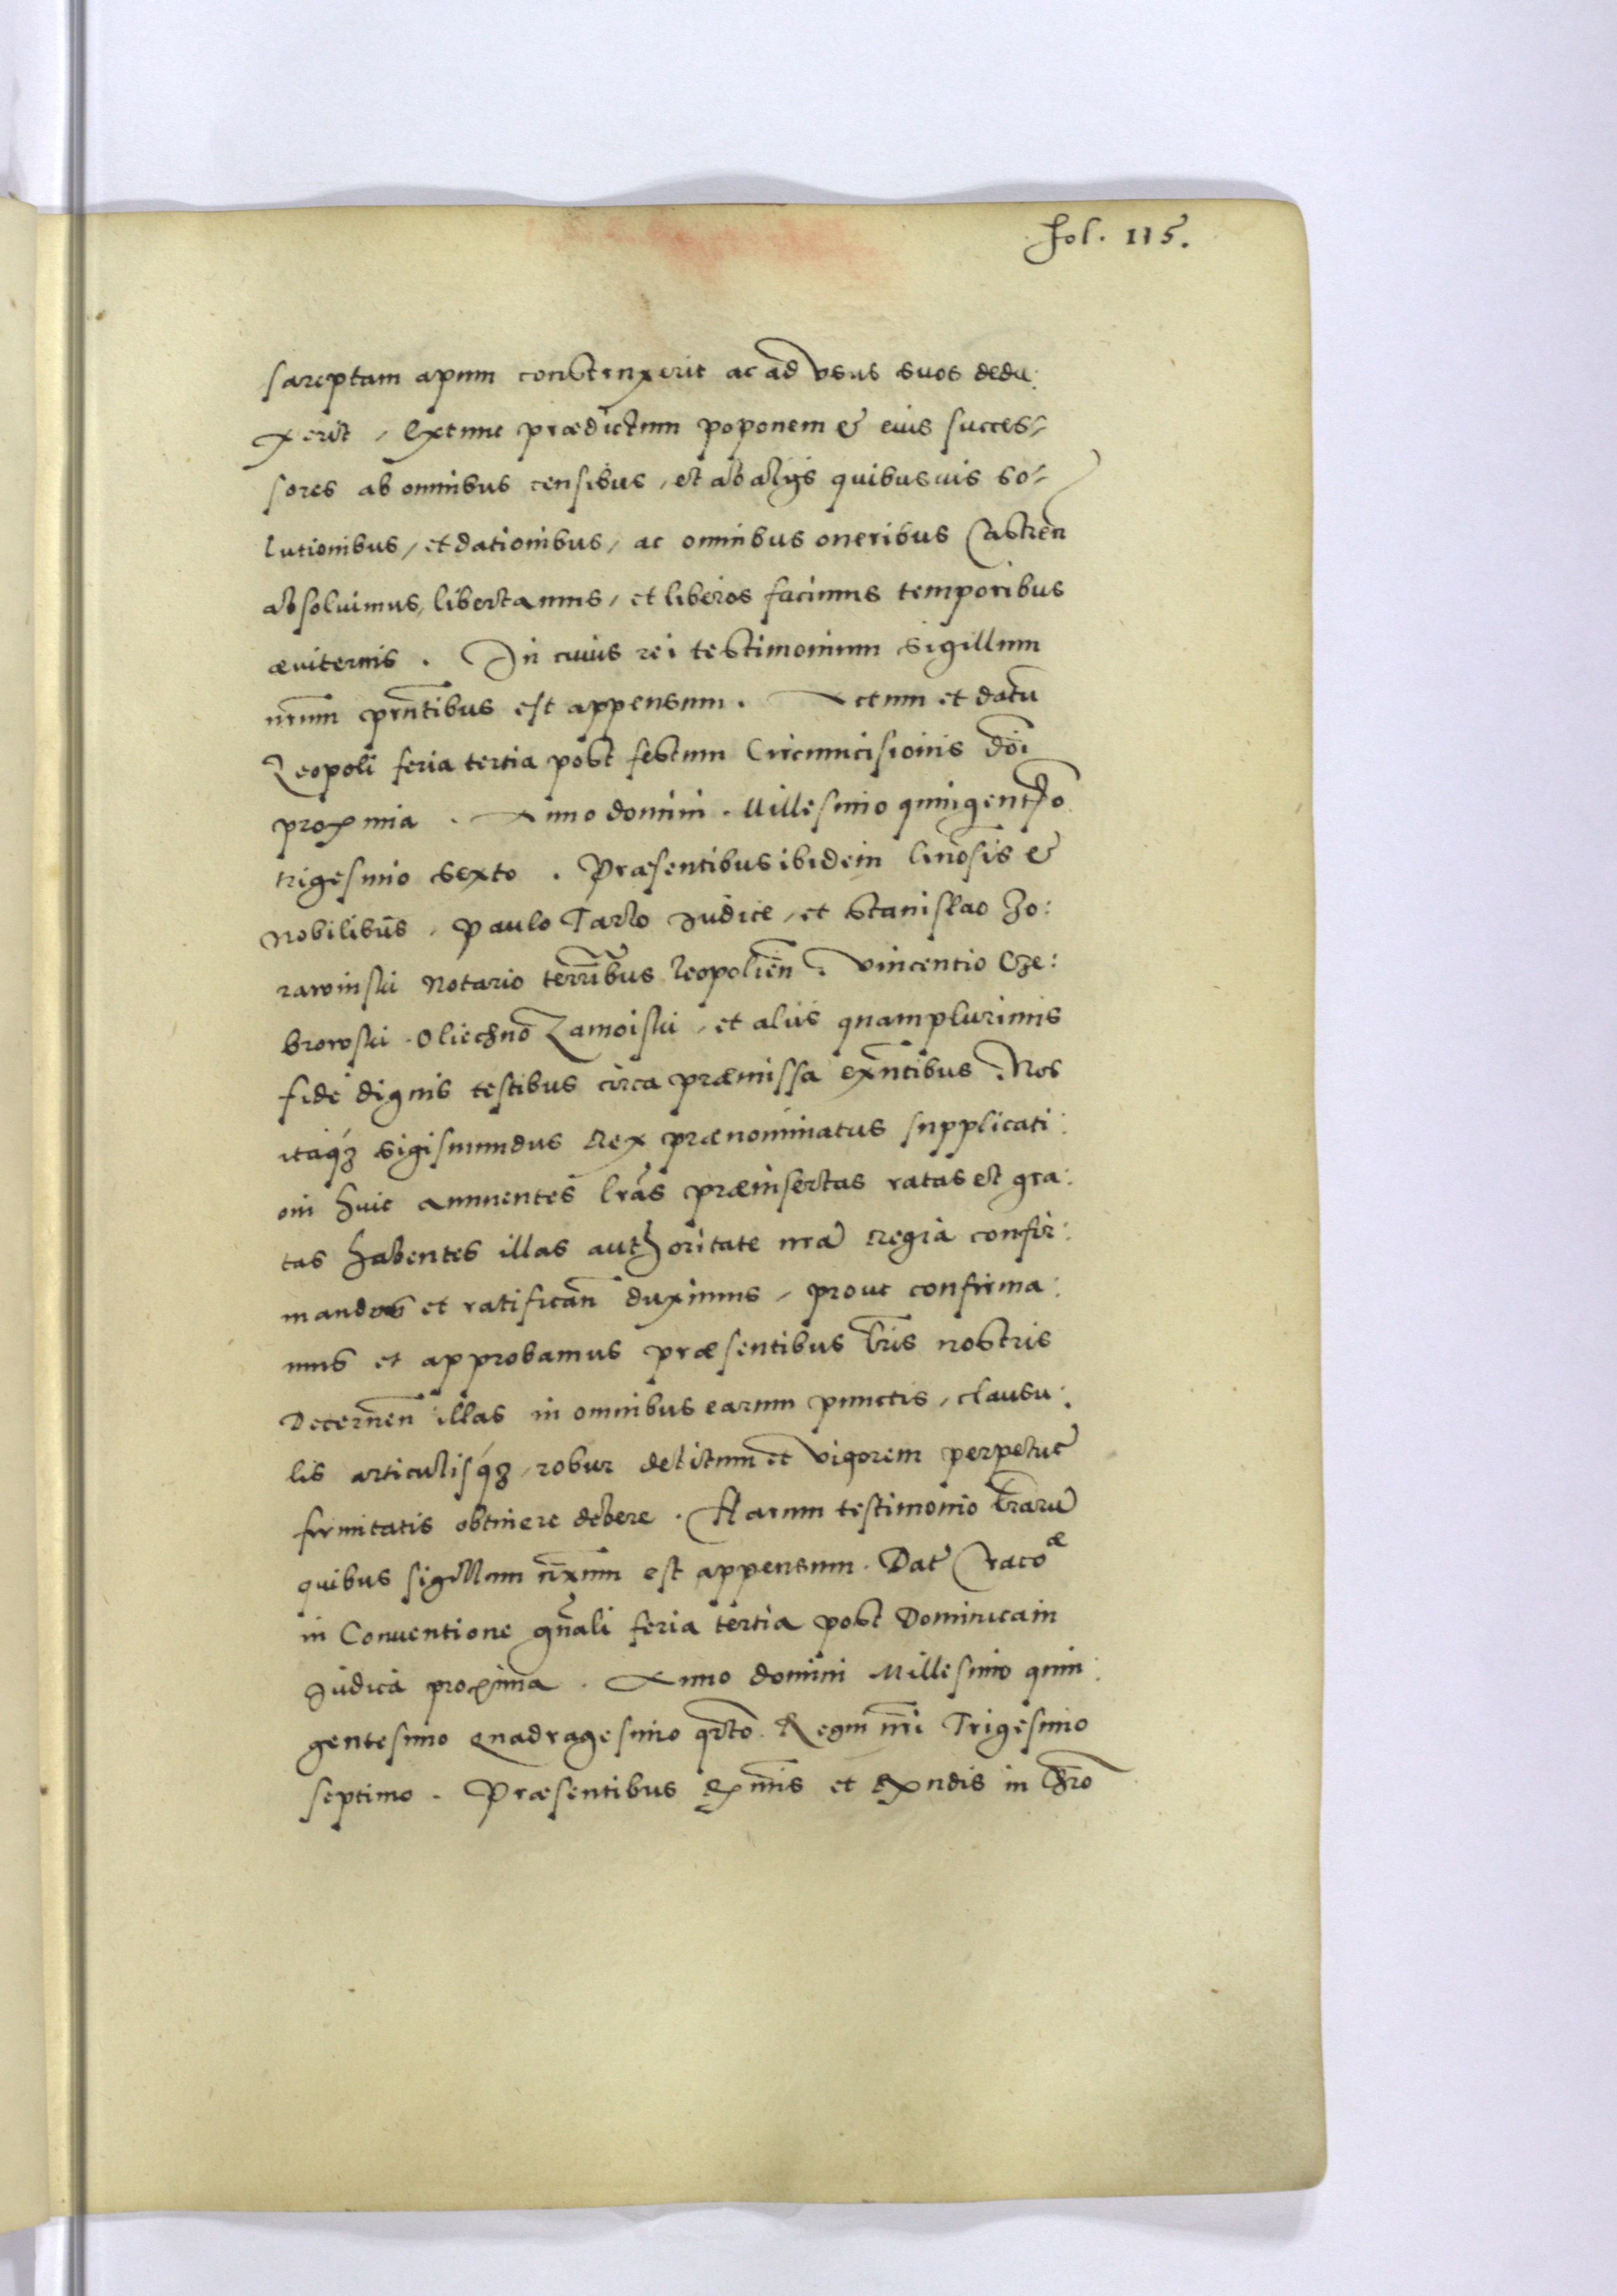 fol. 115.
sareptam apum construxerit ac ad vsus suos dedu:
xerit, Extunc prædictum poponem & eius succes=
sores ab omnibus censibus, et ab alijs quibusuis so=
lutionibus, et dationibus, ac omnibus oneribus Castren̄
absoluimus, libertamus, et liberos facimus temporibus
æuiternis. In cuius rei testimonium sigillum
nr̄um pn̄tibus est appensum. Actum et datū
Leopoli feria tertia post festum Circumcisionis dn̄i
proxima. Anno domini. Millesimo quingentmo
trigesimo sexto. Præsentibus ibidem Gn̄osis &
Nobilibus, Paulo Tarlo Judice, et Stanislao Zo:
rawinski Notario terrībus Leopolien̄. Vincentio Cze:
browski. Oliechno Zamoiski, et aliis quamplurimis
fide dignis testibus circa præmissa exn̄tibus. Nos
itaq3 Sigismundus Rex prænominatus supplicati:
oni huic annuentes lr̄as præinsertas ratas et gra:
tas habentes illas authoritate nr̄a Regia confir:
mandas et ratifican̄ duximus, prout confirma:
mus et approbamus præsentibus lr̄is nostris
Decernen̄ illas in omnibus earum punctis, clausu:
lis articulisq3, robur debitum et vigorem perpetuę
firmitatis obtinere debere. Harum testimonio lr̄arū
quibus sigillum nr̄um est appensum. Dat̄ Cracoæ
in Conuentione gn̄ali feria tertia post Dominicam
Judica proxima. Anno domini Millesimo quin:
gentesimo Quadragesimo qr̄to. Regni nr̄i Trigesimo
septimo. Præsentibus Rmis et Rndis in Chr̄o